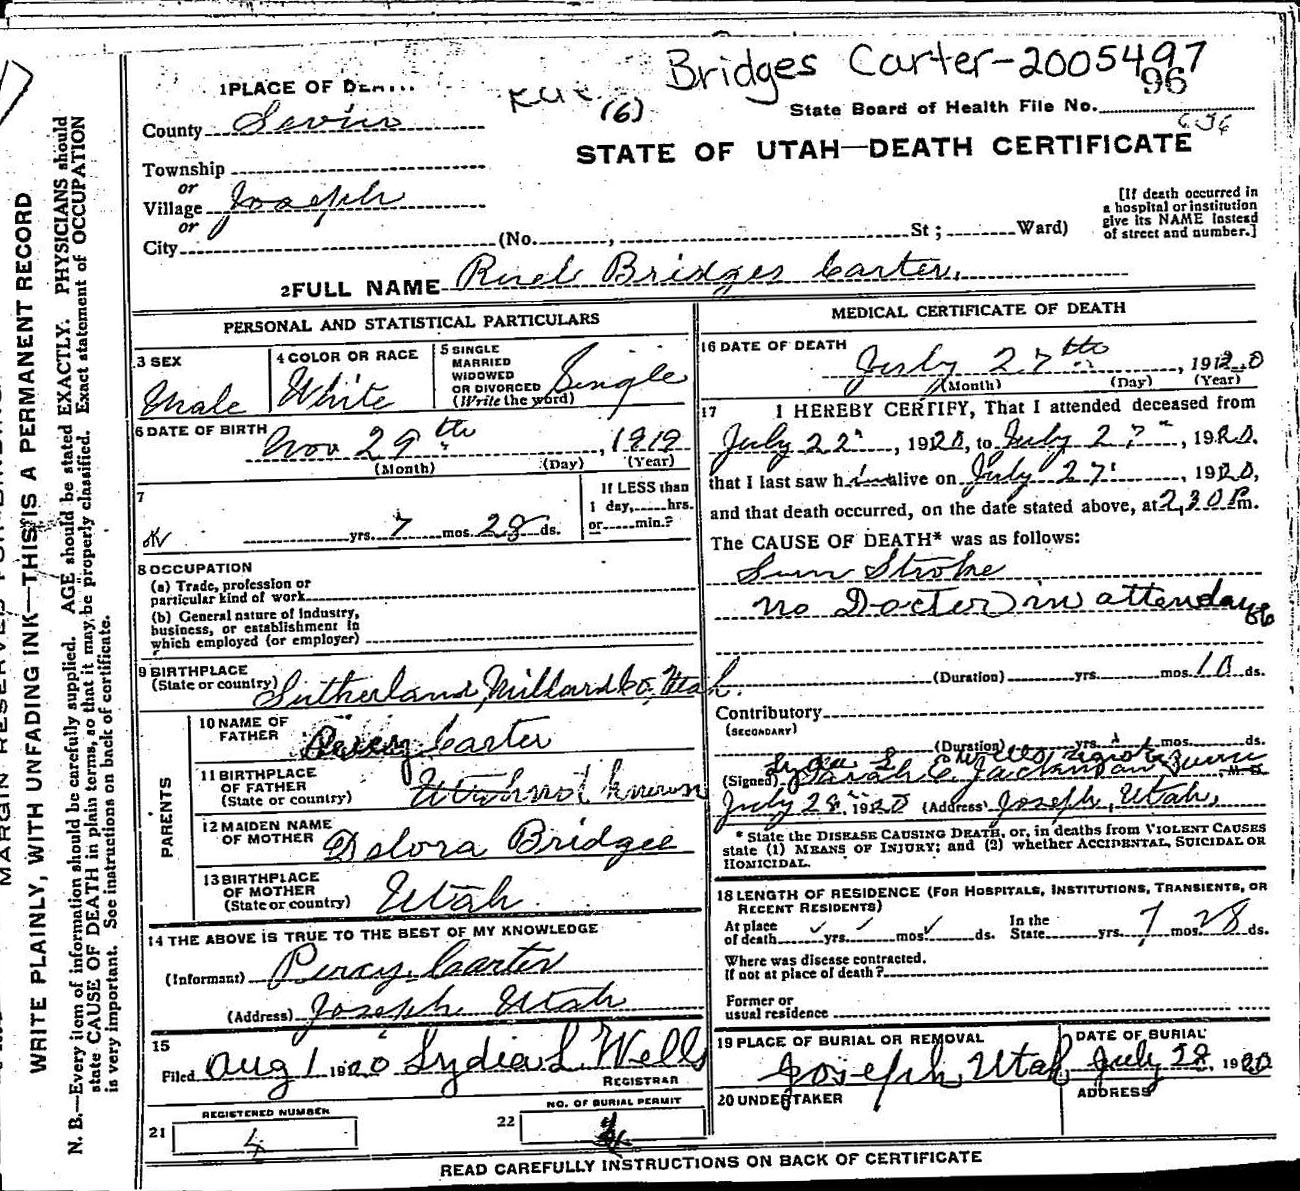 Bridges Carter-2005497
96
1 PLACE OF DEATH
(6)
State Board of Health File No.
County Sevier
STATE OF UTAH—DEATH CERTIFICATE
Township
or
Village Joseph
or
City (No. , St; Ward)
[If death occurred in
a hospital or institution
give its NAME instead
of street and number.]
2 FULL NAME Ruel Bridges Carter.
PERSONAL AND STATISTICAL PARTICULARS
3 SEX
Male
4 COLOR OR RACE
White
5 SINGLE
MARRIED
WIDOWED
OR DIVORCED
(Write the word)
Single
6 DATE OF BIRTH
Nov 29th , 1919
(Month) (Day) (Year)
7
yrs. 7 mos. 28 ds.
If LESS than
1 day, hrs.
or min.?
8 OCCUPATION
(a) Trade, profession or
particular kind of work
(b) General nature of industry,
business, or establishment in
which employed (or employer)
9 BIRTHPLACE
(State or country) Sutherland, Millard Co, Utah.
PARENTS
10 NAME OF
FATHER
Percy Carter
11 BIRTHPLACE
OF FATHER
(State or country)
Utah not known
12 MAIDEN NAME
OF MOTHER
Delora Bridges
13 BIRTHPLACE
OF MOTHER
(State or country)
Utah.
14 THE ABOVE IS TRUE TO THE BEST OF MY KNOWLEDGE
(Informant) Percy Carter
(Address) Joseph Utah
15
Filed Aug 1 1920 Lydia L. Wells
REGISTRAR
REGISTERED NUMBER
21 4
NO. OF BURIAL PERMIT
22
MEDICAL CERTIFICATE OF DEATH
16 DATE OF DEATH
July 27th , 1920
(Month) (Day) (Year)
17 I HEREBY CERTIFY, That I attended deceased from
July 22 , 1920, to July 27 , 1920.
that I last saw him alive on July 27 , 1920,
and that death occurred, on the date stated above, at 2,30 P m.
The CAUSE OF DEATH* was as follows:
Sun Stroke
no Doctor in attendance
(Duration) yrs. mos. 10 ds.
Contributory
(SECONDARY)
(Duration) yrs. mos. ds.
Lydia L Wells, registrar
(Signed) Sarah E. Jackman M. D.
July 28, 1920 (Address) Joseph, Utah,
* State the DISEASE CAUSING DEATH, or, in deaths from VIOLENT CAUSES
state (1) MEANS OF INJURY; and (2) whether ACCIDENTAL, SUICIDAL OR
HOMICIDAL.
18 LENGTH OF RESIDENCE (FOR HOSPITALS, INSTITUTIONS, TRANSIENTS, OR
RECENT RESIDENTS)
At place
of death yrs. mos. ds.
In the
State yrs. 7 mos. 28 ds.
Where was disease contracted,
if not at place of death?
Former or
usual residence
19 PLACE OF BURIAL OR REMOVAL
Joseph Utah
DATE OF BURIAL
July 28, 1920
20 UNDERTAKER
ADDRESS
READ CAREFULLY INSTRUCTIONS ON BACK OF CERTIFICATE
WRITE PLAINLY, WITH UNFADING INK—THIS IS A PERMANENT RECORD
N. B.—Every item of information should be carefully supplied. AGE should be stated EXACTLY. PHYSICIANS should
state CAUSE OF DEATH in plain terms, so that it may be properly classified. Exact statement of OCCUPATION
is very important. See instructions on back of certificate.